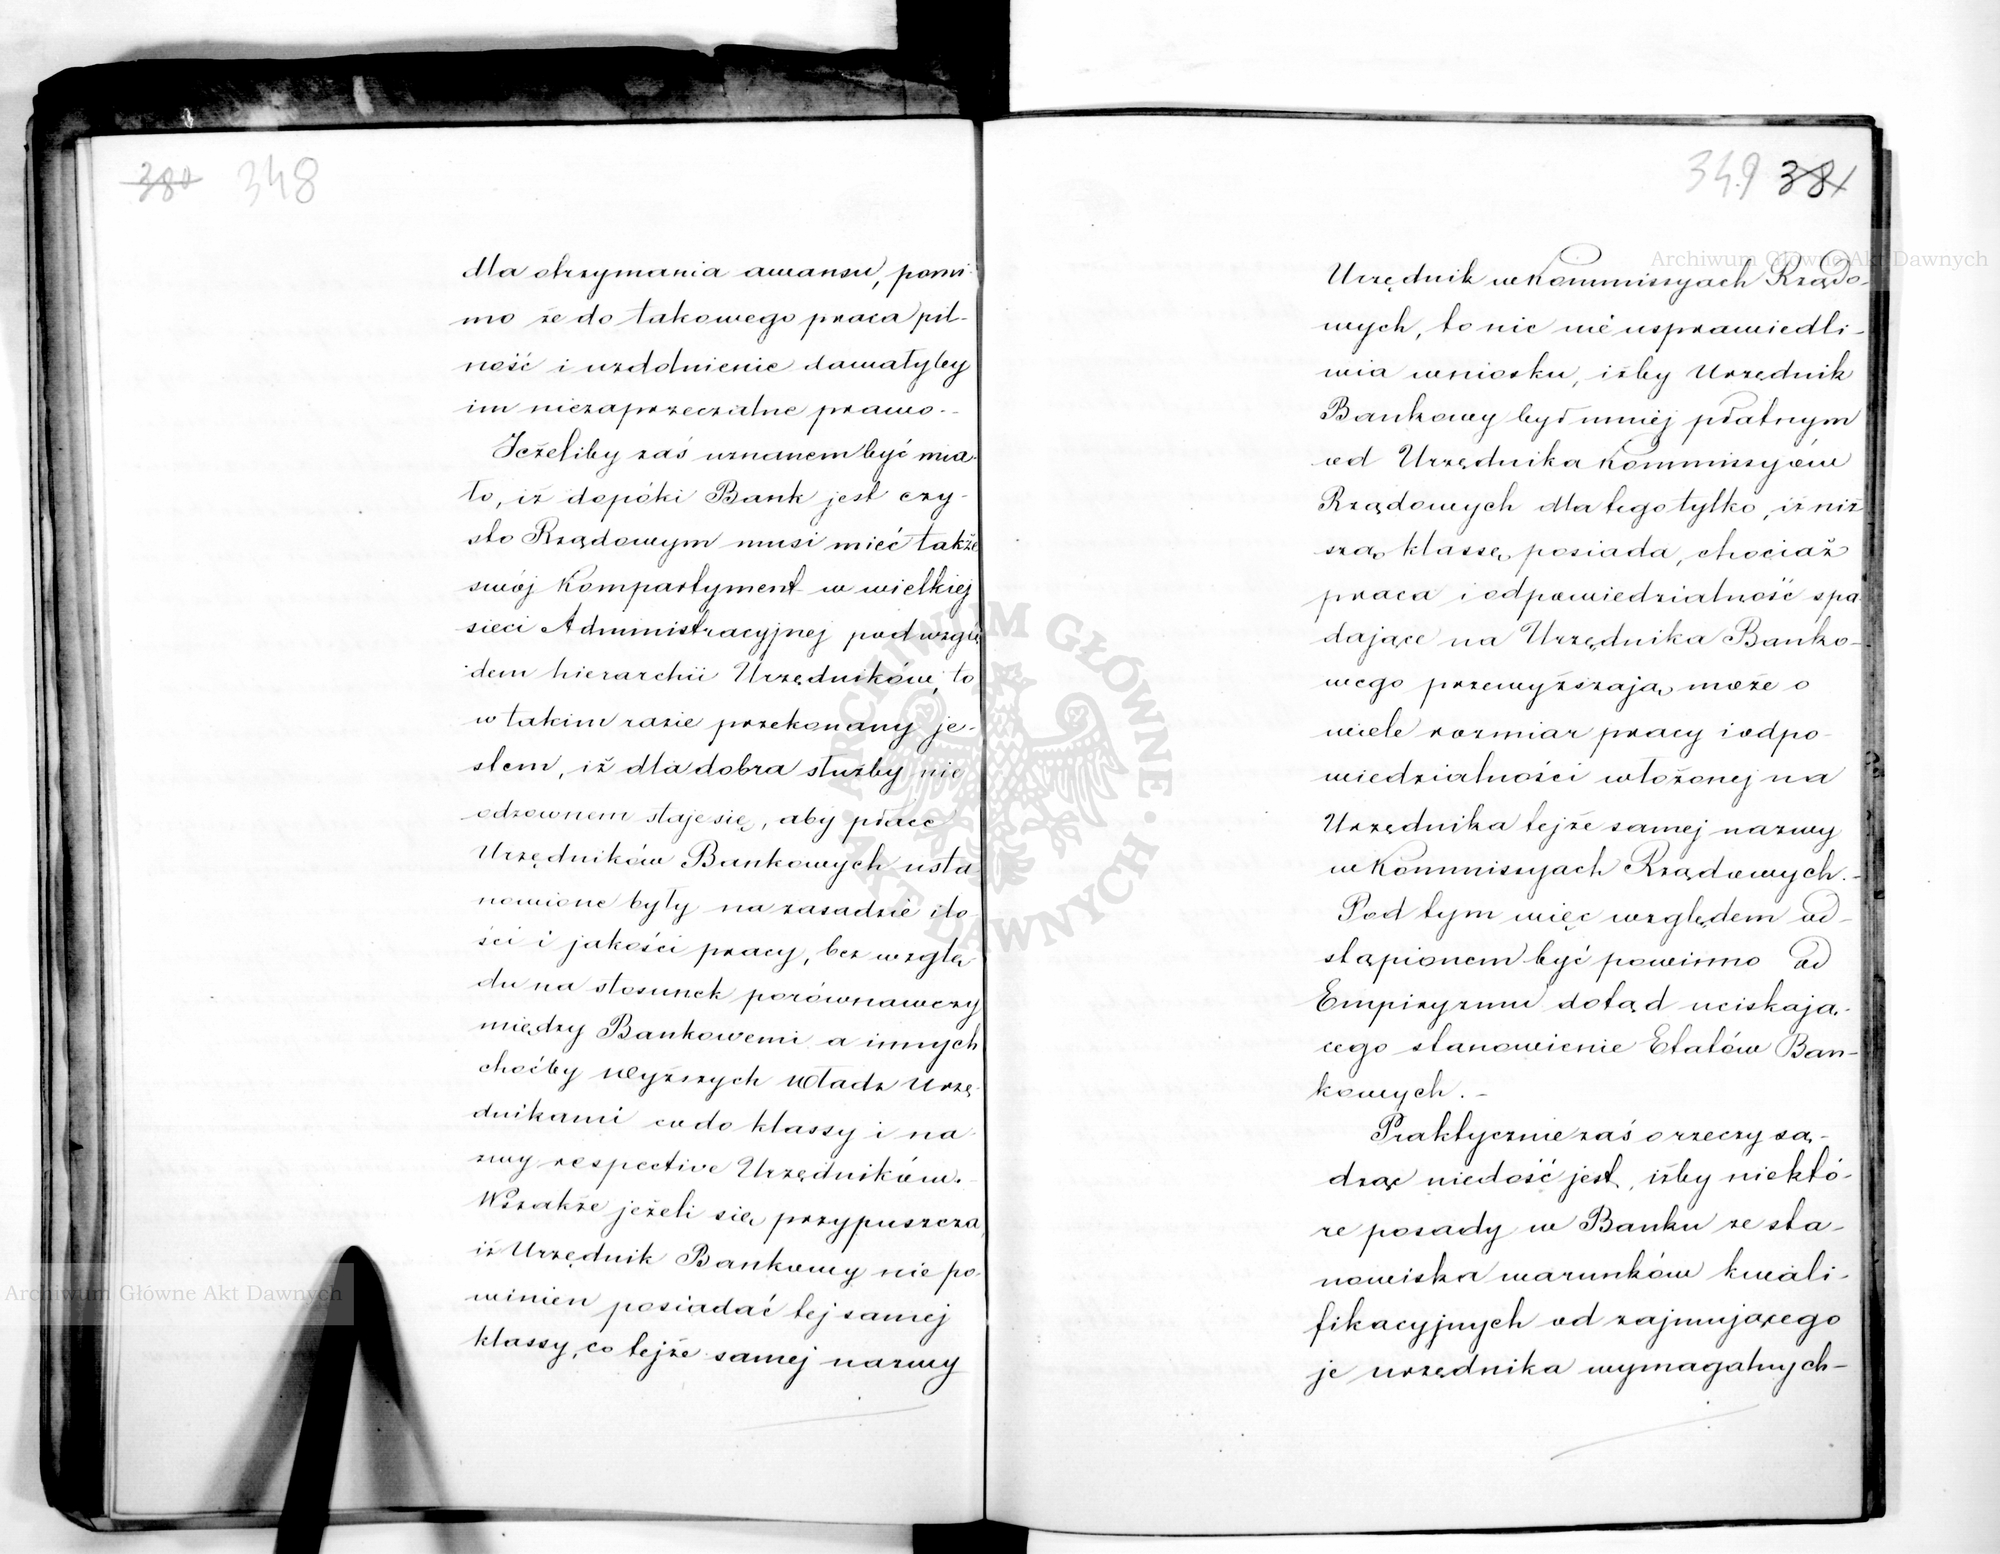 380 348
dla otrzymania awansu, pomi-
mo że do takowego praca pil-
ność i uzdolnienie dawałyby
im niezaprzeczalne prawo.-
Jeżeliby zaś uznanem być mia-
ło, iż dopóki Bank jest czy-
sto Rządowym musi mieć także
swój Kompartyment w wielkiej
sieci Administracyjnej pod wzglę
dem hierarchii Urzędników, to
w takim razie przekonany je-
stem, iż dla dobra służby nie
odzownem staje się, aby płace
Urzędników Bankowych usta
nowione były na zasadzie ilo-
ści i jakości pracy, bez wzglę-
du na stosunek porównawczy
między Bankowemi a innych
choćby wyższych Władz Urzę-
dnikami co do klassy i na-
zwy respective Urzędników.-
Wszakże jeżeli się przypuszcza,
iż Urzędnik Bankowy nie po-
winien posiadać tej samej
klassy, co tejże samej nazwy
349 381
Urzędnik w Kommissyach Rządo-
wych, to nic nie usprawiedli-
wia wniosku, iżby Urzędnik
Bankowy był mniej płatnym
od Urzędnika Kommissyów
Rządowych dla tego tylko, iż niż
szą klassę posiada, chociaż
praca i odpowiedzialność spa
dające na Urzędnika Banko-
wego przewyższają może o
wiele rozmiar pracy i odpo-
wiedzialności włożonej na
Urzędnika tejże samej nazwy
w Kommissyach Rządowych.-
Pod tym więc względem od-
stąpionem być powinno od
Empiryzmu dotąd uciskają-
cego stanowienie Etatów Ban-
kowych.-
Praktycznie zaś o rzeczy są-
dząc niedość jest, iżby niektó-
re posady w Banku ze sta-
nowiska warunków kwali-
fikacyjnych od zajmującego
je urzędnika wymagalnych-
Archiwum Główne Akt Dawnych
Archiwum Główne Akt Dawnych
ARCHIWUM GŁÓWNE AKT DAWNYCH